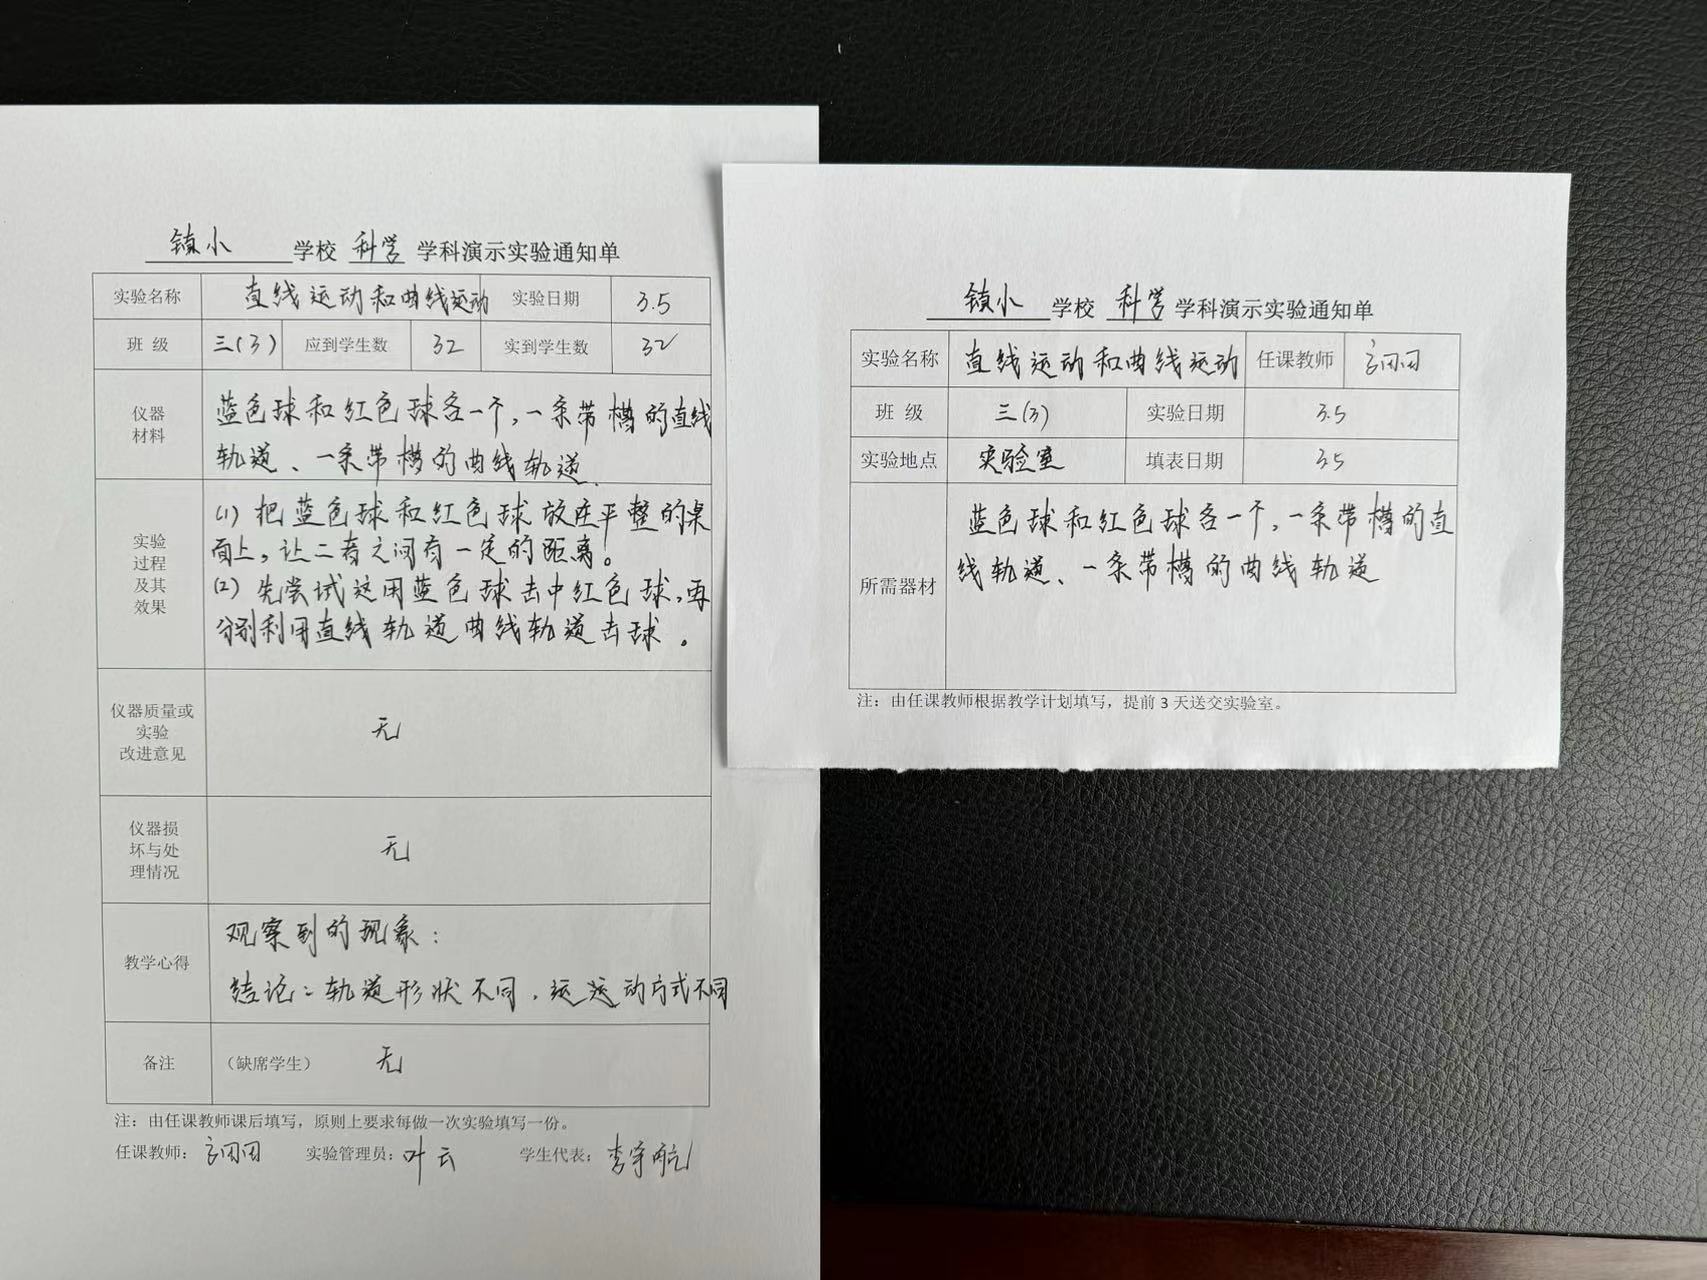 镇小 学校 科学 学科演示实验通知单
实验名称 直线运动和曲线运动 实验日期 3.5
班 级 三(3) 应到学生数 32 实到学生数 32
仪器
材料
蓝色球和红色球各一个,一条带槽的直线
轨道、一条带槽的曲线轨道.
实验
过程
及其
效果
(1) 把蓝色球和红色球放在平整的桌
面上,让二者之间有一定的距离。
(2) 先尝试这用蓝色球击中红色球,再
分别利用直线轨道曲线轨道击球。
仪器质量或
实验
改进意见
无
仪器损
坏与处
理情况
无
教学心得
观察到的现象:
结论:轨道形状不同,运运动方式不同
备注 (缺席学生) 无
注:由任课教师课后填写,原则上要求每做一次实验填写一份。
任课教师: 实验管理员:叶云 学生代表:李宇航
镇小 学校 科学 学科演示实验通知单
实验名称 直线运动和曲线运动 任课教师
班 级 三(3) 实验日期 3.5
实验地点 实验室 填表日期 3.5
所需器材
蓝色球和红色球各一个,一条带槽的直
线轨道、一条带槽的曲线轨道
注:由任课教师根据教学计划填写,提前 3 天送交实验室。